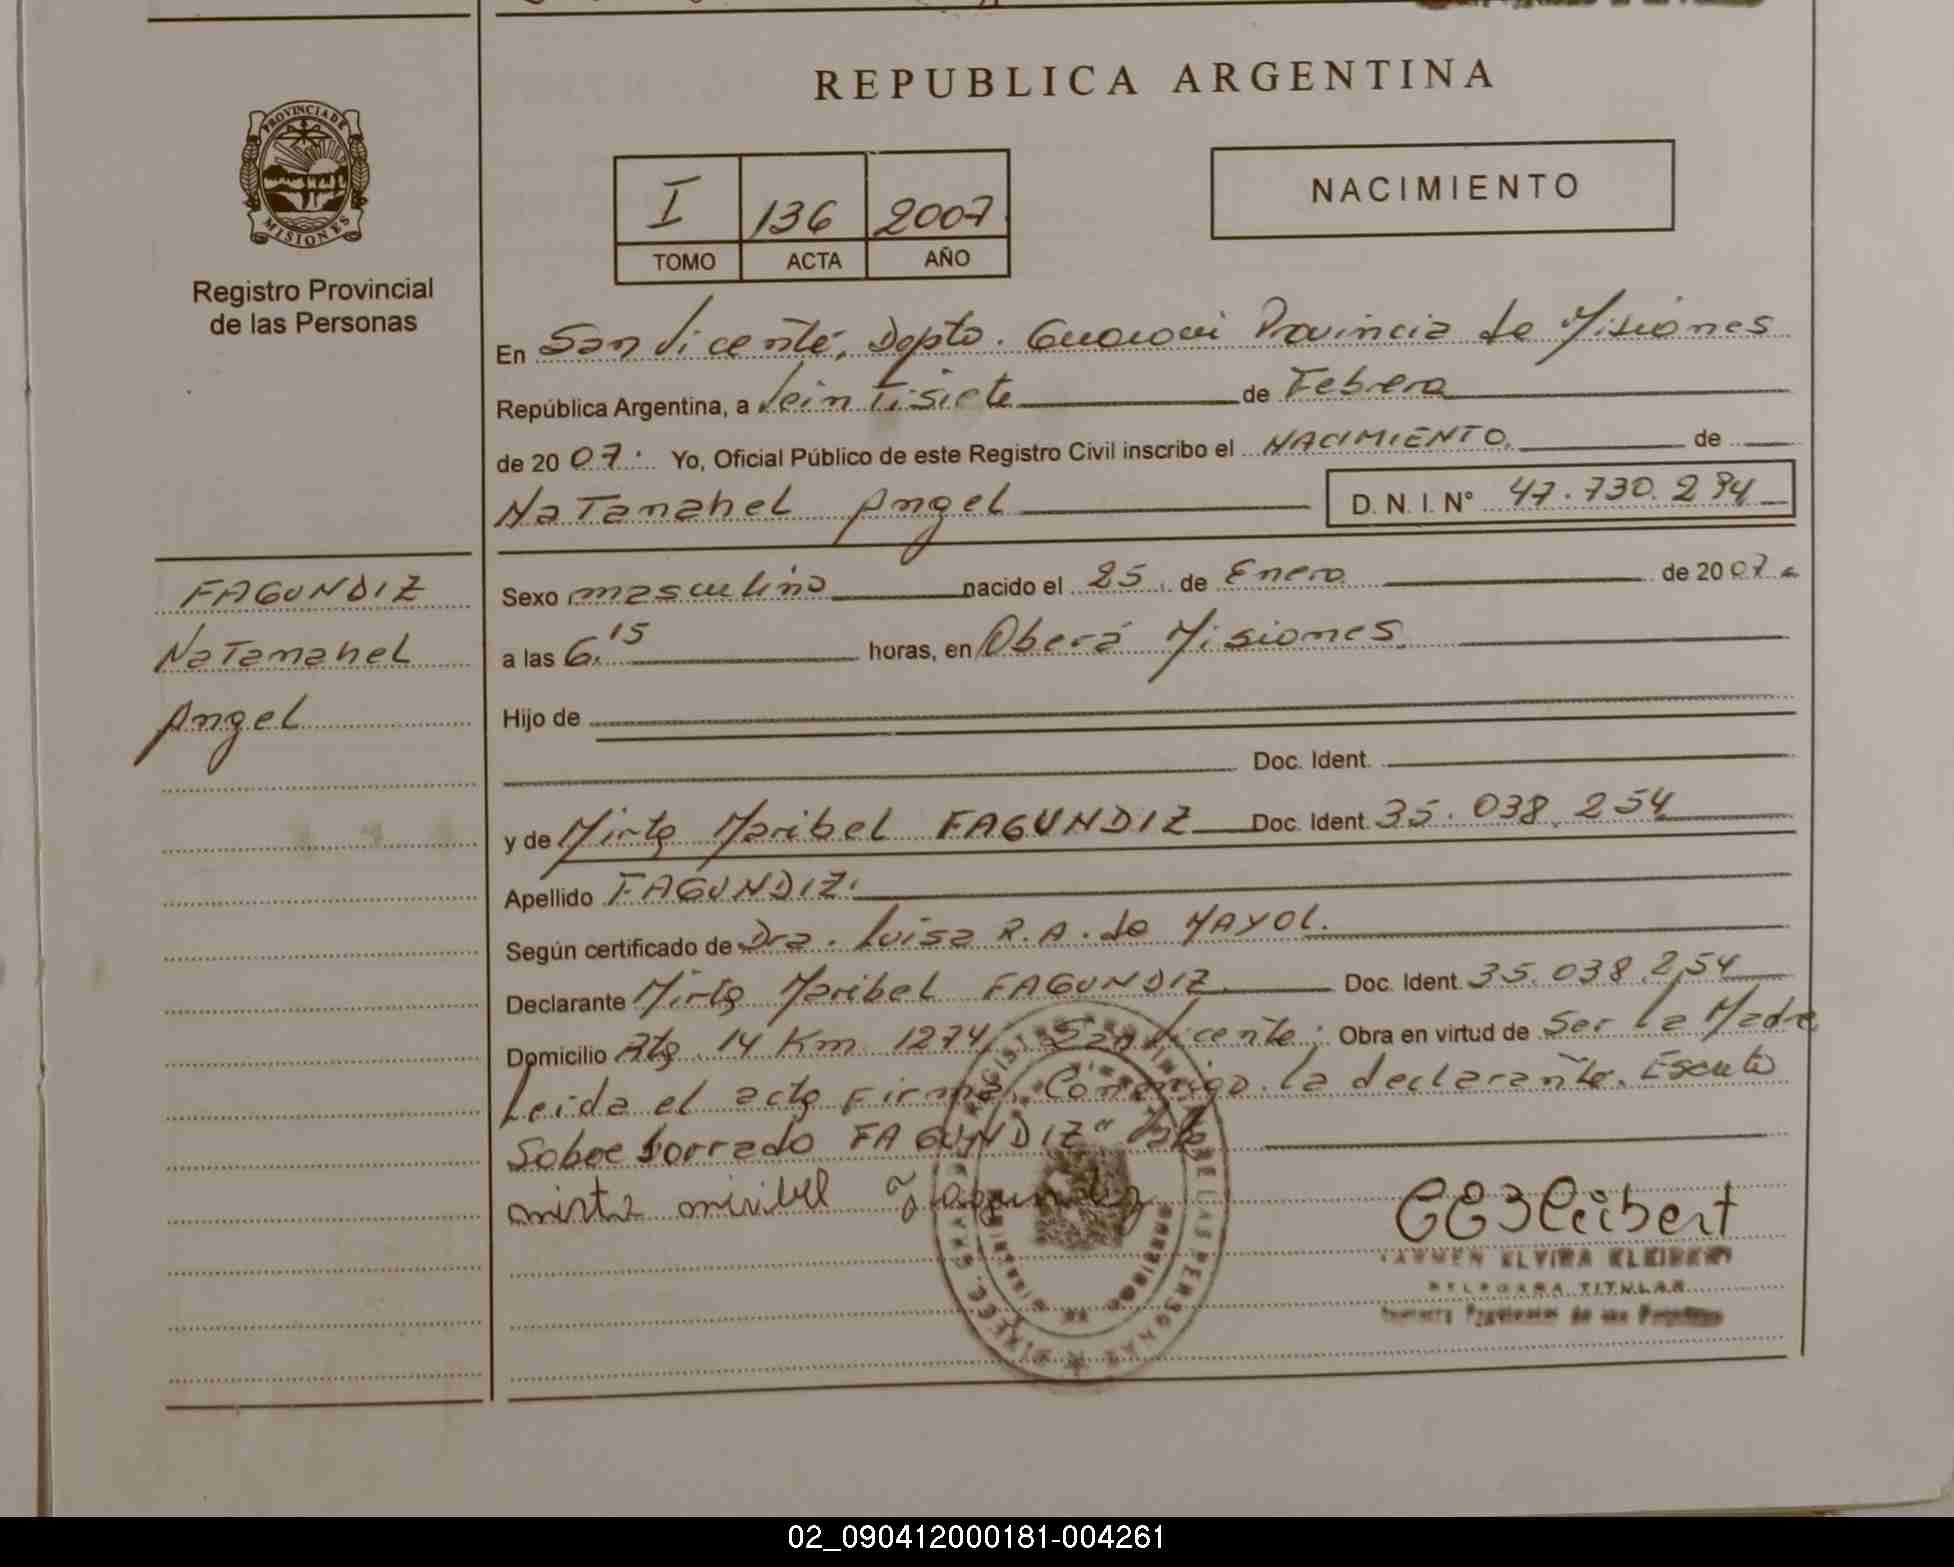 REPUBLICA ARGENTINA
PROVINCIA DE
MISIONES
Registro Provincial
de las Personas
I 136 2007
TOMO ACTA AÑO
NACIMIENTO
En San Vicente, Depto. Guaraní Provincia de Misiones
República Argentina, a Veintisiete de Febrero
de 2007. Yo, Oficial Público de este Registro Civil inscribo el NACIMIENTO. de
NaTanahel Angel D. N. I. N° 47.730.294
FAGUNDIZ
NaTanahel
Angel
Sexo masculino nacido el 25 de Enero de 2007
a las 6.15 horas, en Oberá Misiones
Hijo de
Doc. Ident.
y de Mirta Maribel FAGUNDIZ Doc. Ident. 35.038.254
Apellido FAGUNDIZ.
Según certificado de Dra. Luisa R.A. de MAYOL.
Declarante Mirta Maribel FAGUNDIZ. Doc. Ident. 35.038.254
Domicilio Rta 14 Km 1274, San Vicente. Obra en virtud de Ser la Madre
Leida el acta Firma Conmigo la declarante. Escrito
Sobre borrado FAGUNDIZ" Vale
mirta miribel Fagundiz
CE Kleibert
CARMEN ELVIRA KLEIBERT
DELEGADA TITULAR
02_090412000181-004261